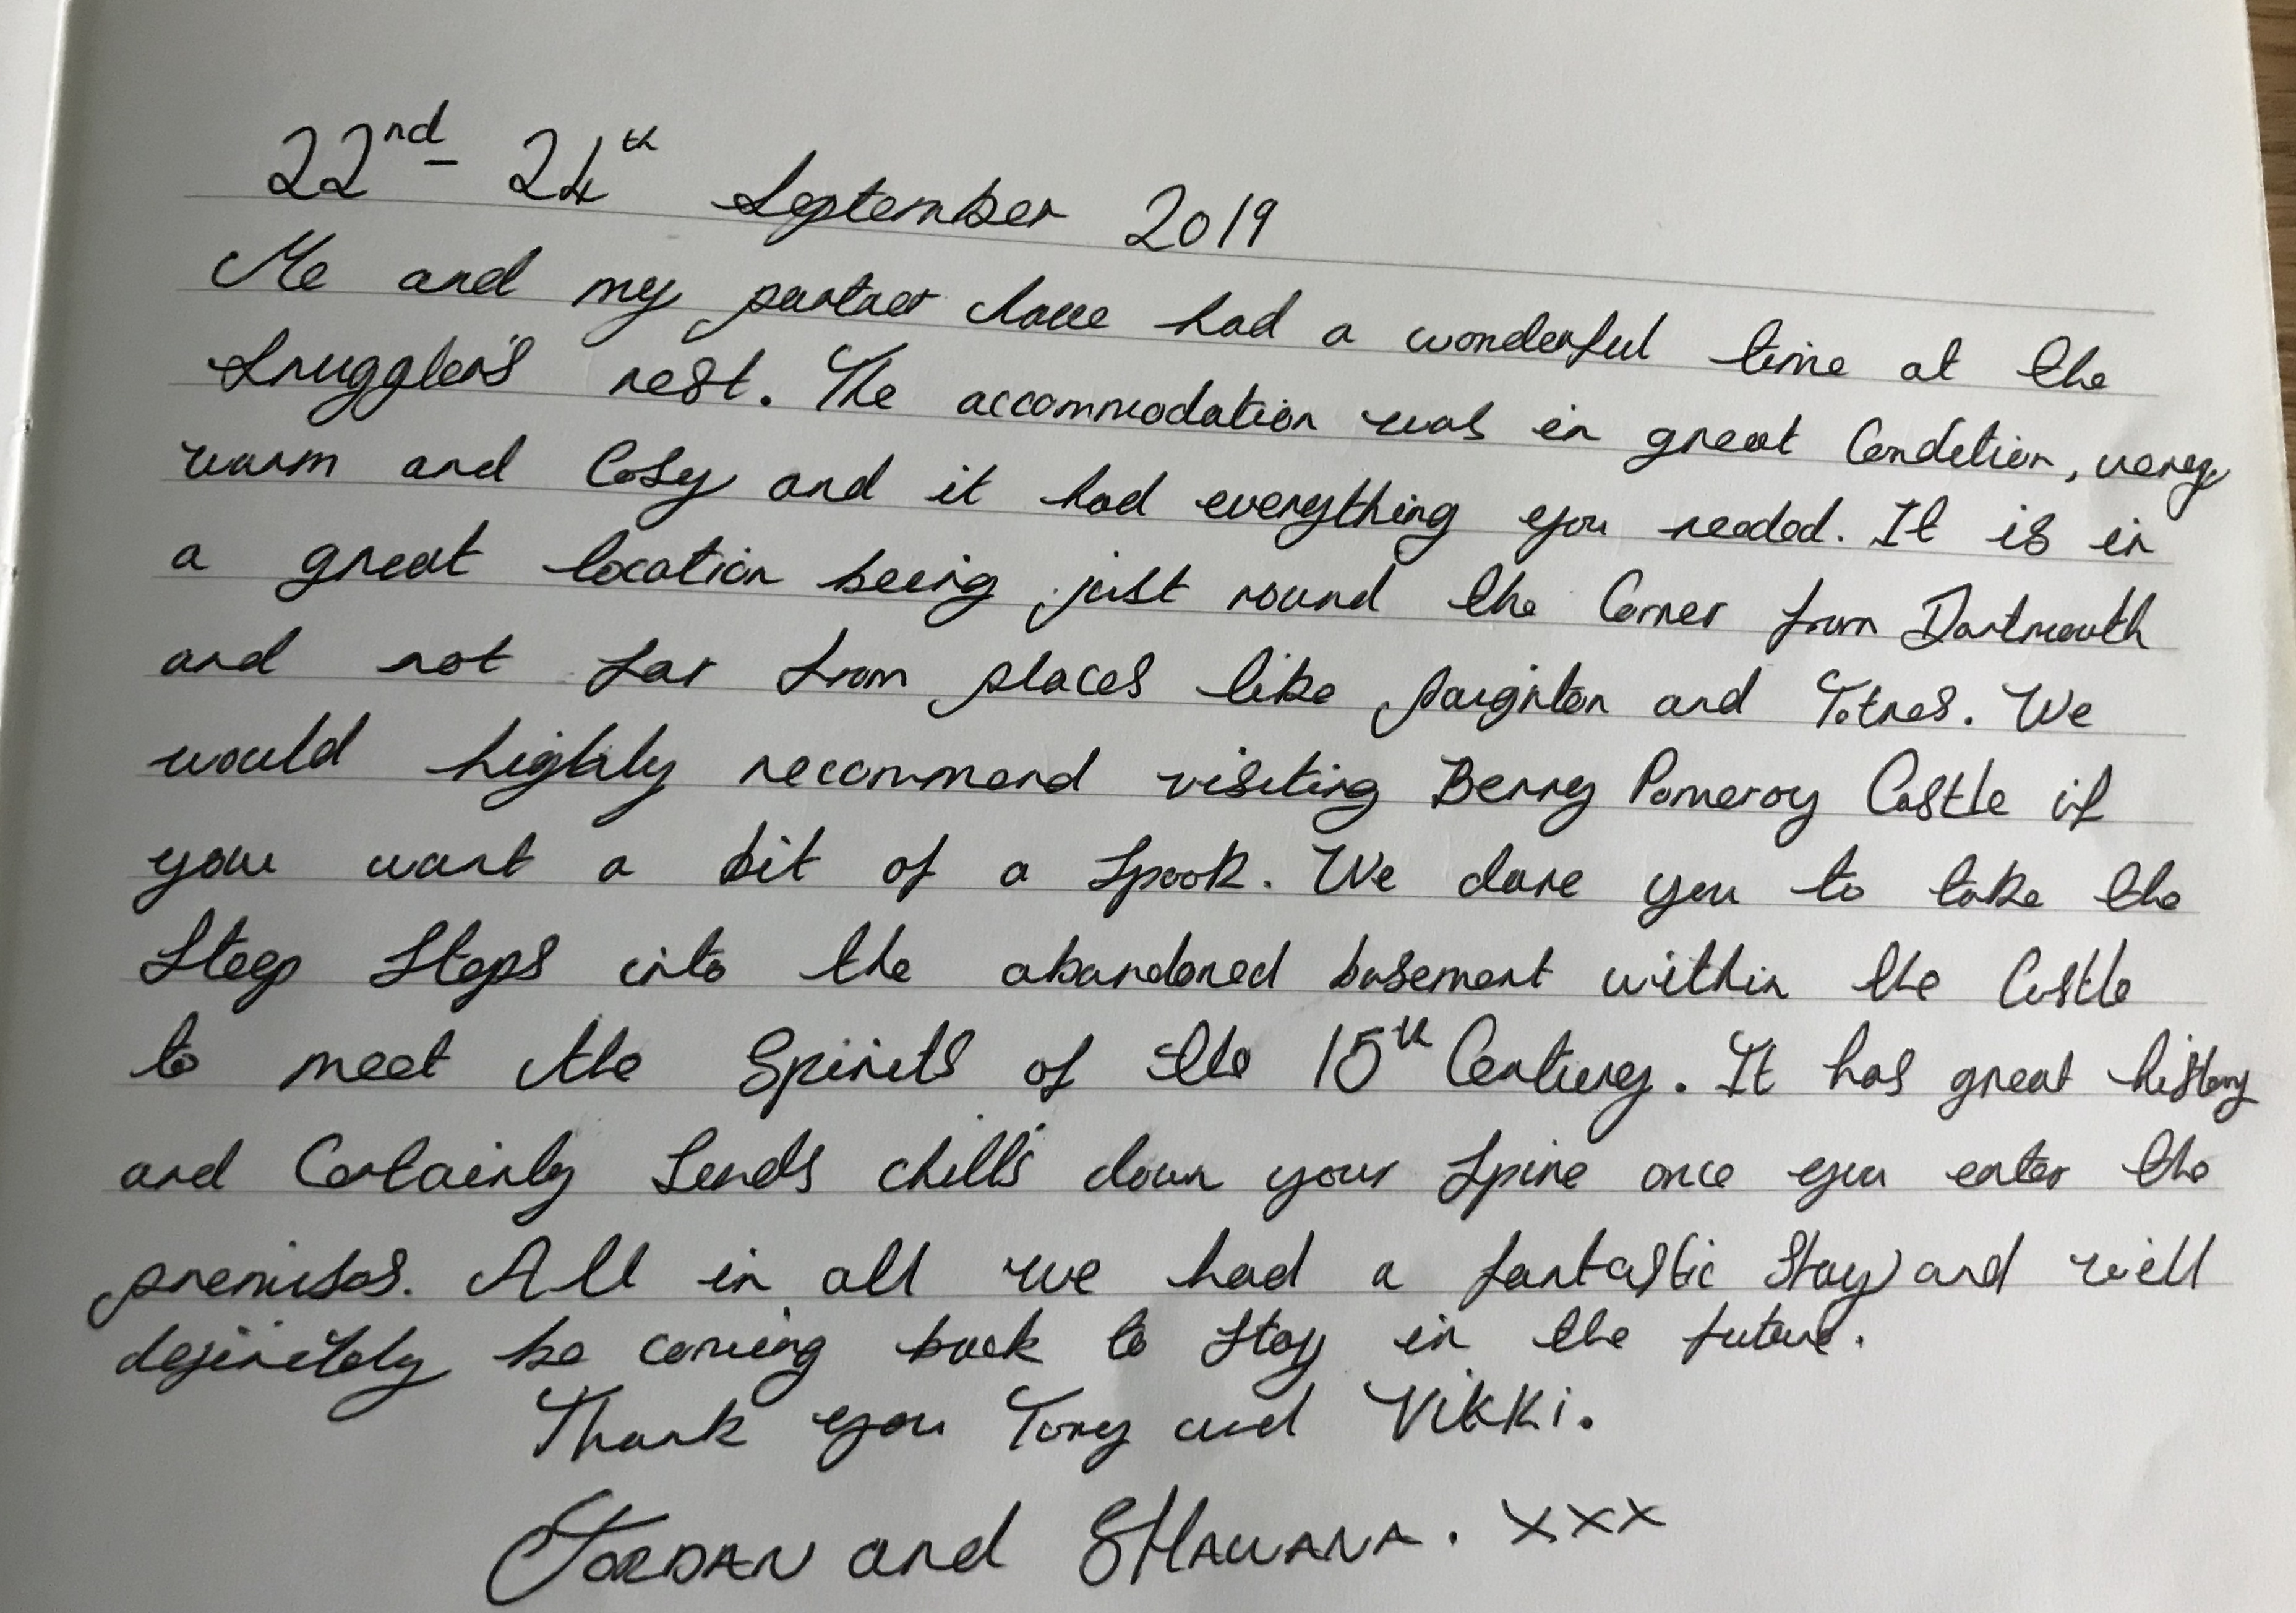 22nd - 24th September 2019
Me and my partner have had a wonderful time at the
Snuggler's rest. The accommodation was in great Condition, very
warm and Cosy and it had everything you needed. It is in
a great location being just round the Corner from Dartmouth
and not far from places like Paignton and Totnes. We
would highly recommend visiting Berry Pomeroy Castle if
you want a bit of a spook. We dare you to take the
Steep Steps into the abandoned basement within the Castle
to meet the Spirits of the 15th Century. It has great history
and Certainly Sends chills down your Spine once you enter the
premises. All in all we had a fantastic Stay and will
definitely be coming back to Stay in the future.
Thank you Tony and Vikki.
JORDAN and SHAWANA. xxx